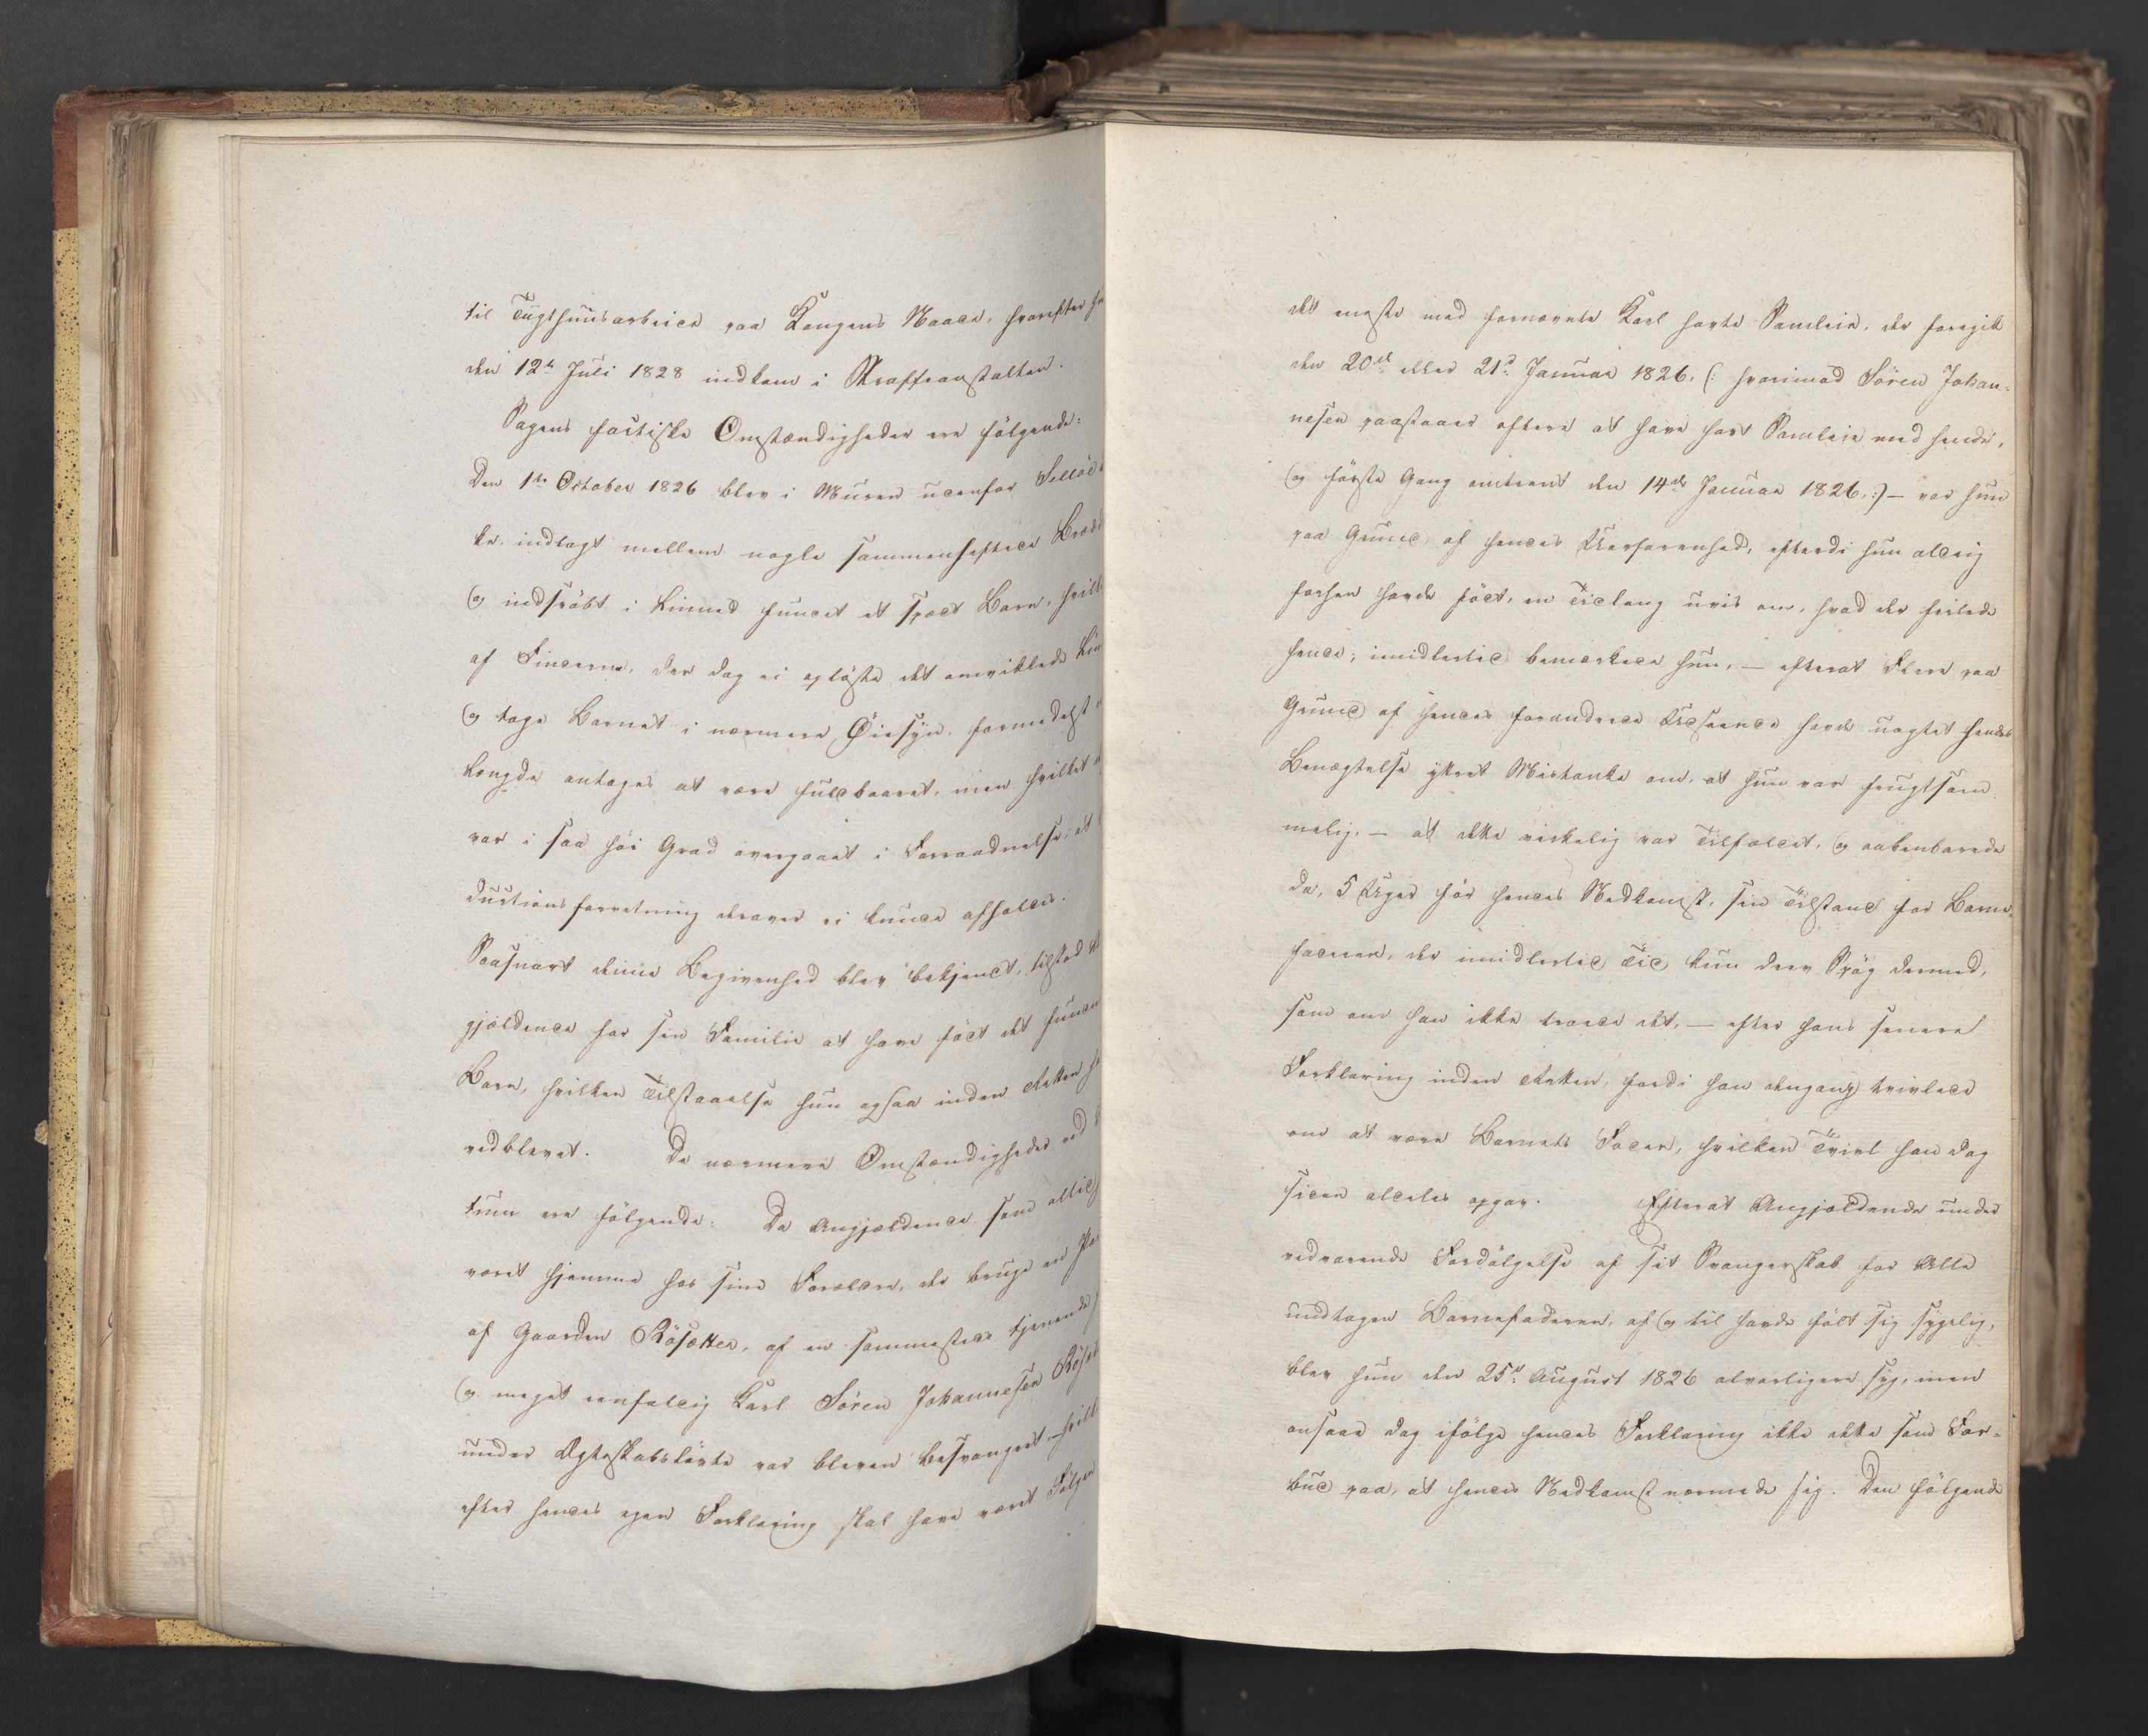 til Tugthuusarbeide paa Kongens Naade, hvorefter
den 12te Juli 1828 indkom i Straffeanstalten.
Sagens factiske Omstændigheder ere følgende:
Den 1ste October 1826 blev i Muren udenfor
indlagt mellem nogle sammenheftede
og indsvøbt i Linned fundet et spædt Barn,
af Finderne, der dog ei opløste det omviklede
og toge Barnet i nærmere Øiesyn, formedelst
Længde antoges at være fuldbaaret, men hvilket
var i saa høi Grad overgaaet i Forraadnelse, at
ductionsforretning derover ei kunde afholdes.
Saasnart denne Begivenhed blev bekjendt, tilstod
gjældende for sin Familie at have født det
Barn, hvilken Tilstaaelse hun ogsaa inden Retten
vedblevet. De nærmere Omstændigheder ved
trum ere følgende: Da Angjældende som altid
været hjemme hos sine Forældre, der bruge en
af Gaarden Røsætter, af en sammesteds tjenende
og meget eenfoldig Karl Søren Johannesen
under Ægteskabsløvte var bleven besvangret
efter hendes egen Forklaring skal have været
det eneste med fornævnte Karl havte Samleie, der foregik
den 20de eller 21de Januar 1826, (: hvorimod Søren Johan-
nesen paastaaer oftere at have havt Samleie med hende,
og første Gang omtrent den 14de Januar 1826. :) — var hun
paa Grund af hendes Uerfarenhed, efterdi hun aldrig
forhen havde født, en Tidlang uvis om, hvad der feilede
hende; imidlertid bemærkede hun, — efterat Flere paa
Grund af hendes forandrede Udseende havde uagtet hendes
Benægtelse yttret Mistanke om, at hun var frugtsom-
melig, — at dette virkelig var Tilfældet, og aabenbarede
da, 5 Uger før hendes Nedkomst, sin Tilstand for Barne-
faderen, der imidlertid Tid kun drev Spøg dermed,
som om han ikke troede det, — efter hans senere
Forklaring inden Retten, fordi han dengang tvivlede
om at være Barnets Fader, hvilken Tvivl han dog
siden aldeles opgav. Efterat Angjældende under
vedvarende Fordølgelse af sit Svangerskab for Alle
undtagen Barnefaderen, af og til havde følt sig sygelig,
blev hun den 25de August 1826 alvorligere syg, men
ansaae dog ifølge hendes Forklaring ikke dette som For-
bud paa, at hendes Nedkomst nærmede sig. Den følgende